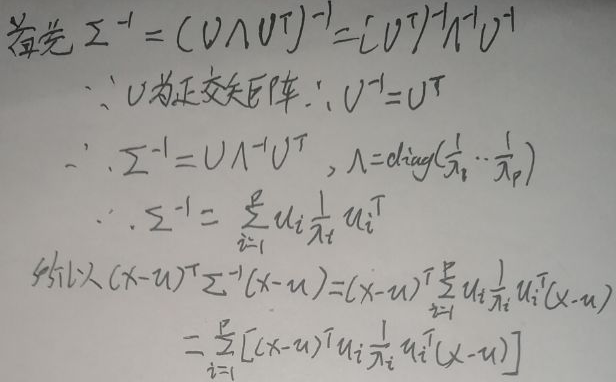 首先 Σ⁻¹ = (UΛUᵀ)⁻¹ = (Uᵀ)⁻¹Λ⁻¹U⁻¹
∵ U为正交矩阵 ∴ U⁻¹ = Uᵀ
∴ Σ⁻¹ = UΛ⁻¹Uᵀ , Λ = diag(1/λ₁ ·· 1/λₚ)
∴ Σ⁻¹ = Σᵢ₌₁ᵖ uᵢ 1/λᵢ uᵢᵀ
所以 (x-u)ᵀΣ⁻¹(x-u) = (x-u)ᵀ Σᵢ₌₁ᵖ uᵢ 1/λᵢ uᵢᵀ(x-u)
= Σᵢ₌₁ᵖ [(x-u)ᵀuᵢ 1/λᵢ uᵢᵀ(x-u)]